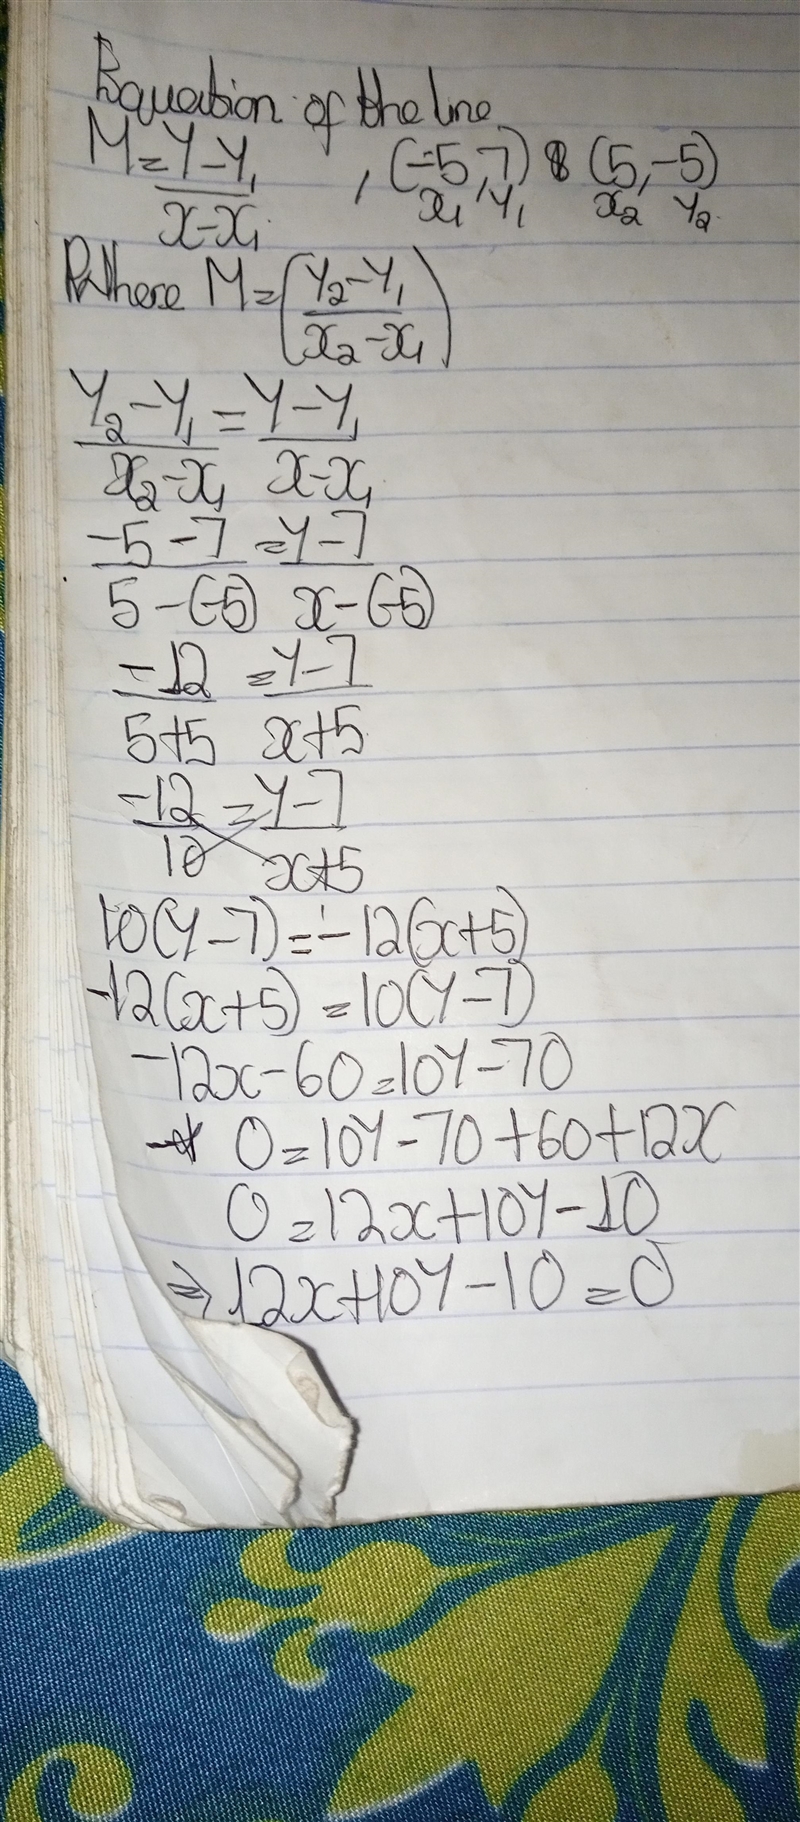 Equation of the line
M = Y-Y₁/x-x₁ , (-5, 7) & (5, -5)
x₁, Y₁ x₂ Y₂
Where M = (Y₂-Y₁/x₂-x₁)
Y₂-Y₁/x₂-x₁ = Y-Y₁/x-x₁
-5-7/5-(-5) = Y-7/x-(-5)
-12/5+5 = Y-7/x+5
-12/10 = Y-7/x+5
10(Y-7) = -12(x+5)
-12(x+5) = 10(Y-7)
-12x-60 = 10Y-70
0 = 10Y-70+60+12x
0 = 12x+10Y-10
⇒ 12x+10Y-10 = 0